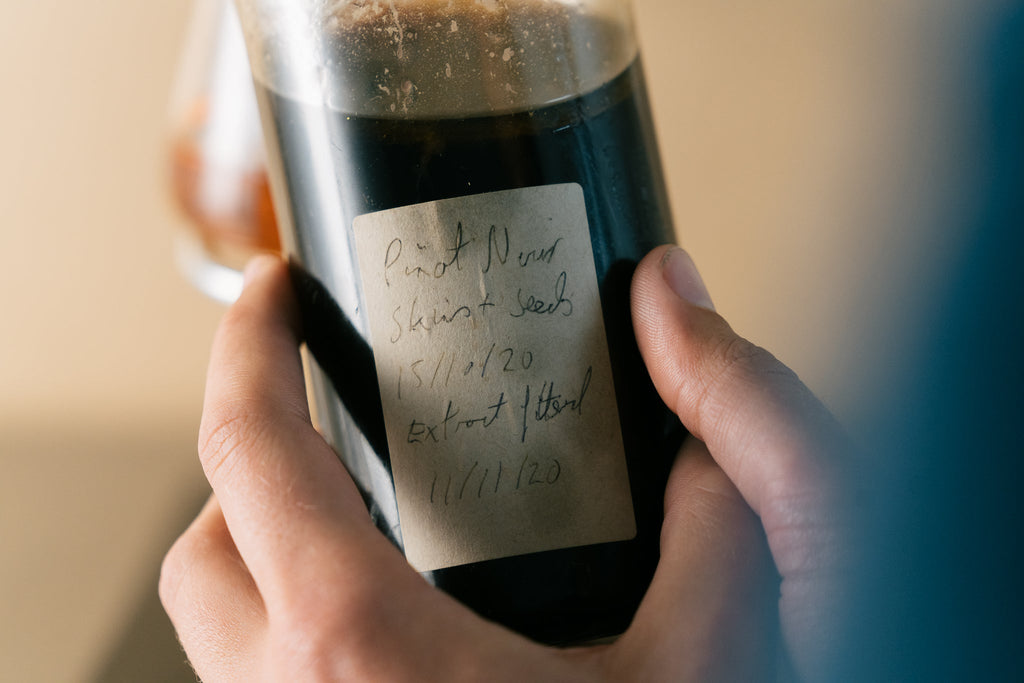 Pinot Noir
Skins + Seeds
15/10/20
Extract filtered
11/11/20